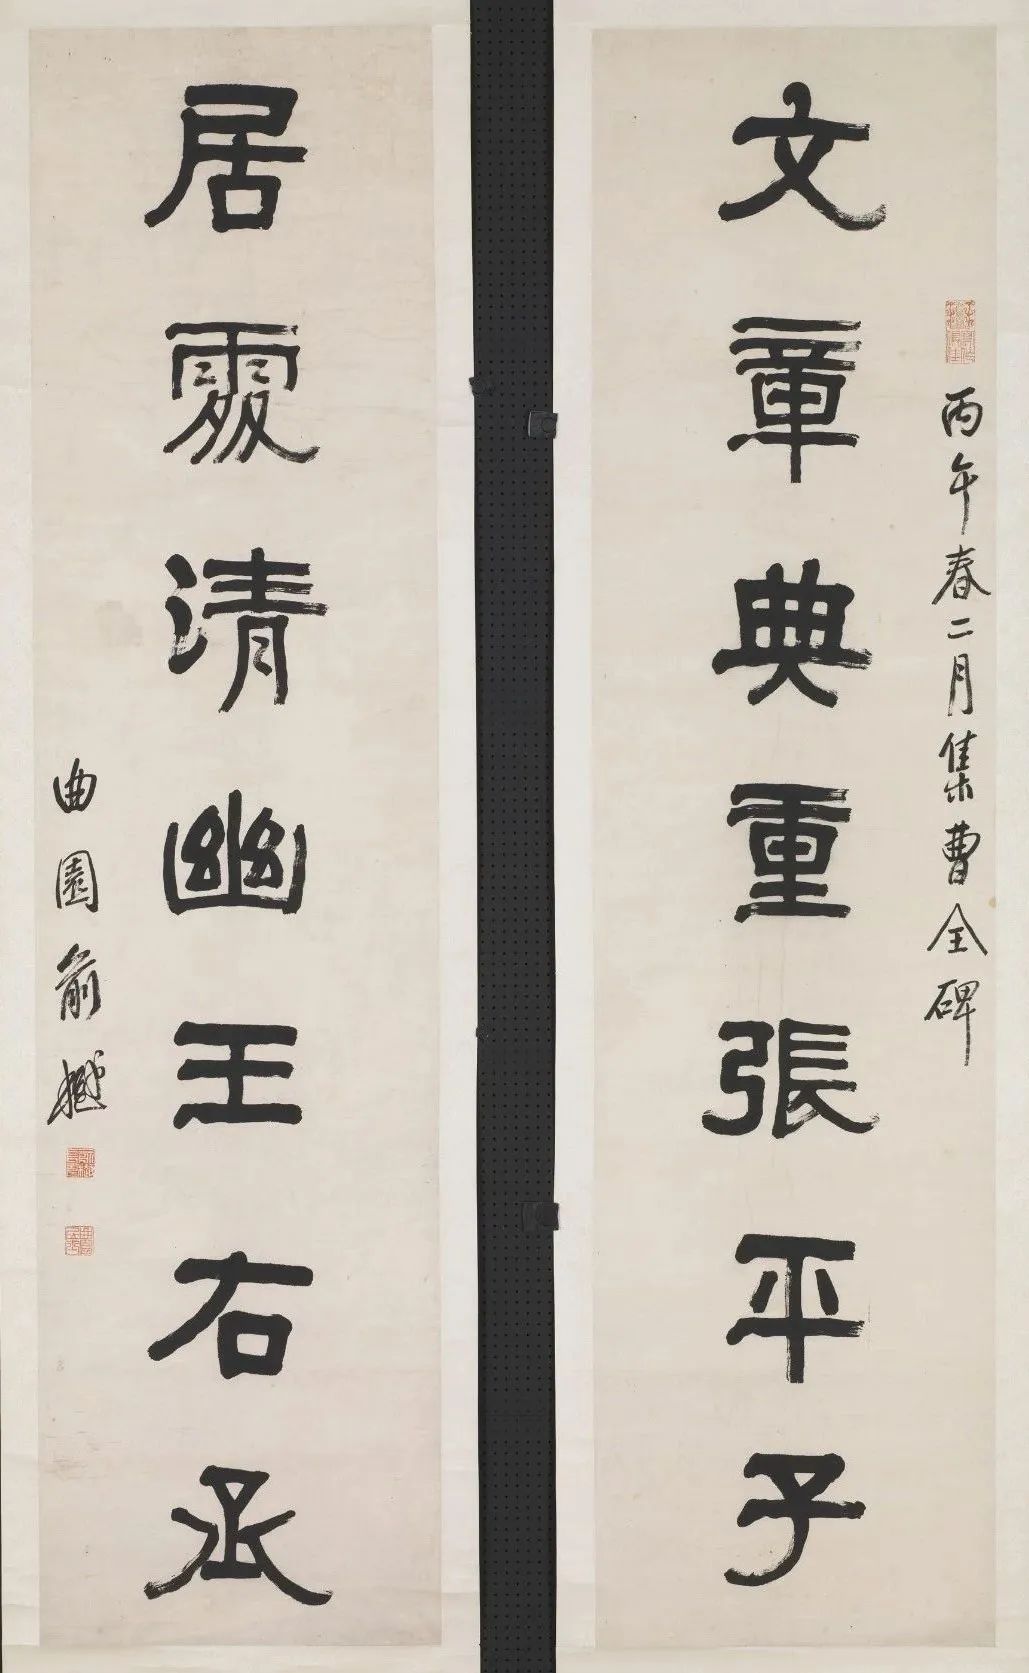 文章典重張平子
丙午春二月集曹全碑
居處清幽王右丞
曲園俞樾